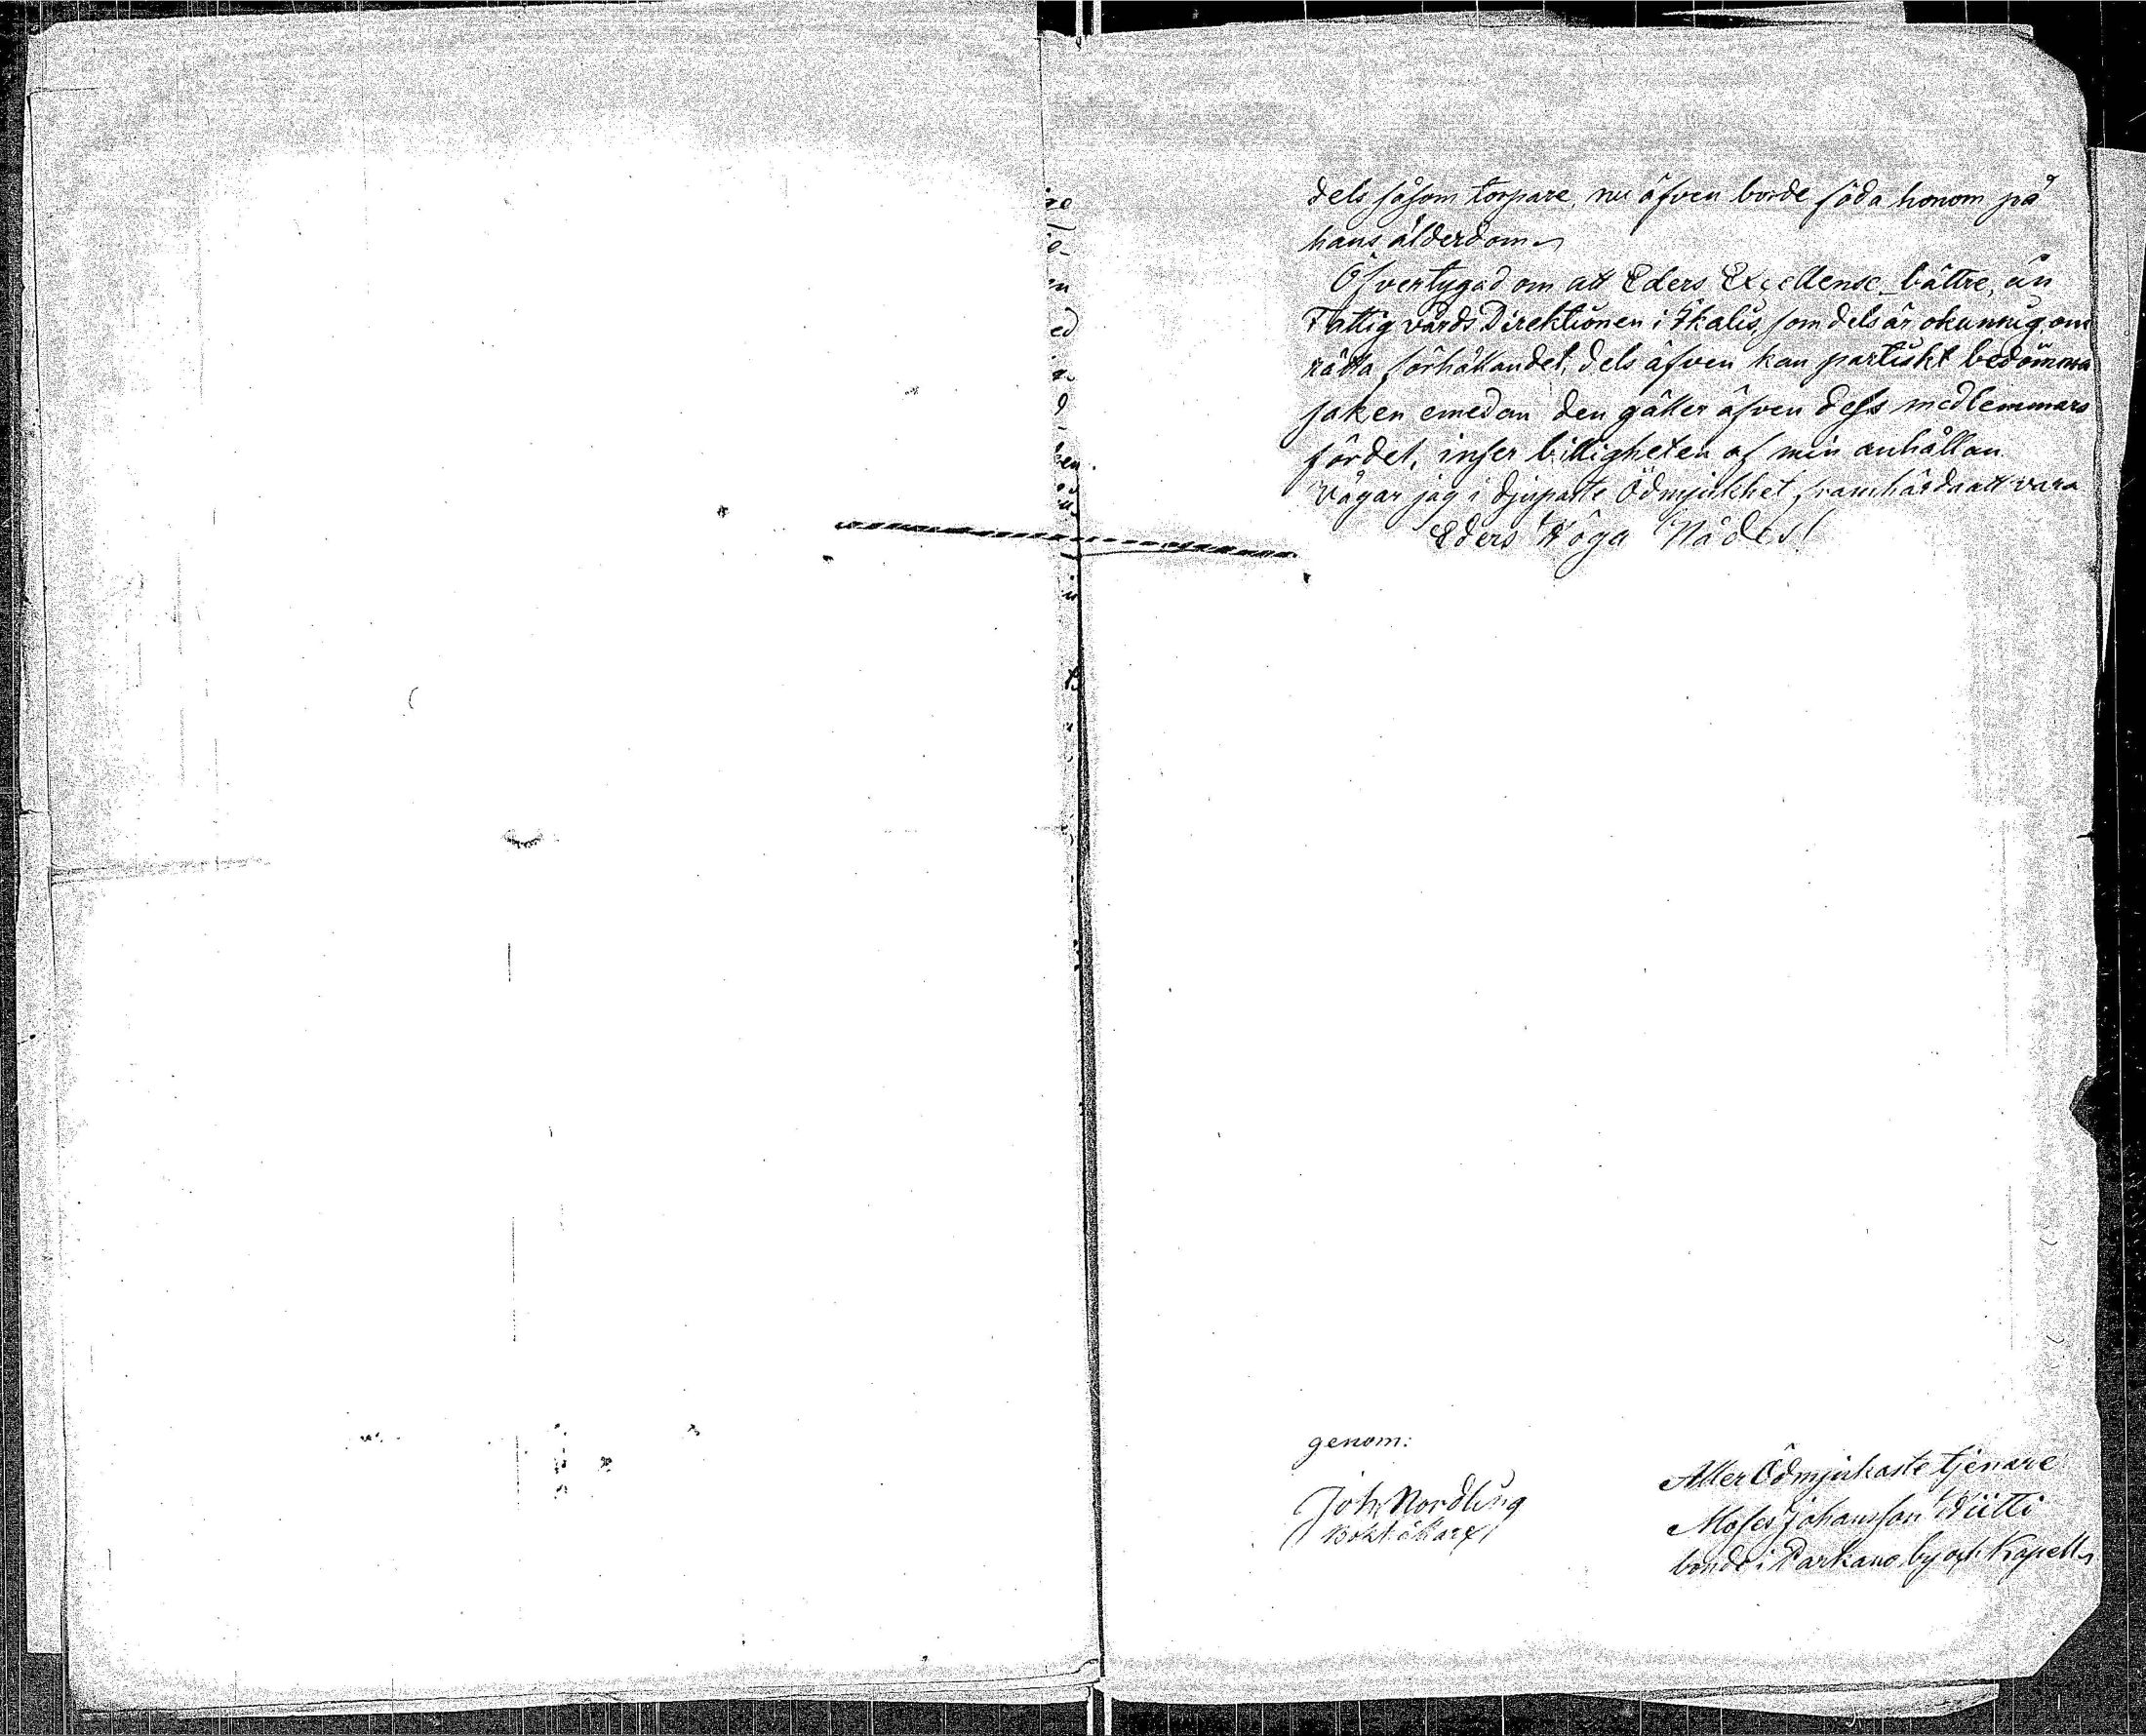 dels såsom torpare, nu äfven borde föda honom på
hans ålderdom
Öfvertygad om att Eders Excellense bättre, än
Fattigvårds Direktionen i Ikalis, som dels är okunnig om
rätta förhållandet, dels äfven kan partiskt bedömma
saken emedan den gäller äfven dess medlemmars
fördel, inser billigheten af min anhållan
Vågar jag i djupaste Ödmjukhet framhärda att vara
Eders Höga Nådes!
genom:
Joh. Nordling
Aller Ödmjukaste tjenare
Moses Johansson Wiitti
bonde i Parkano by och Kapell